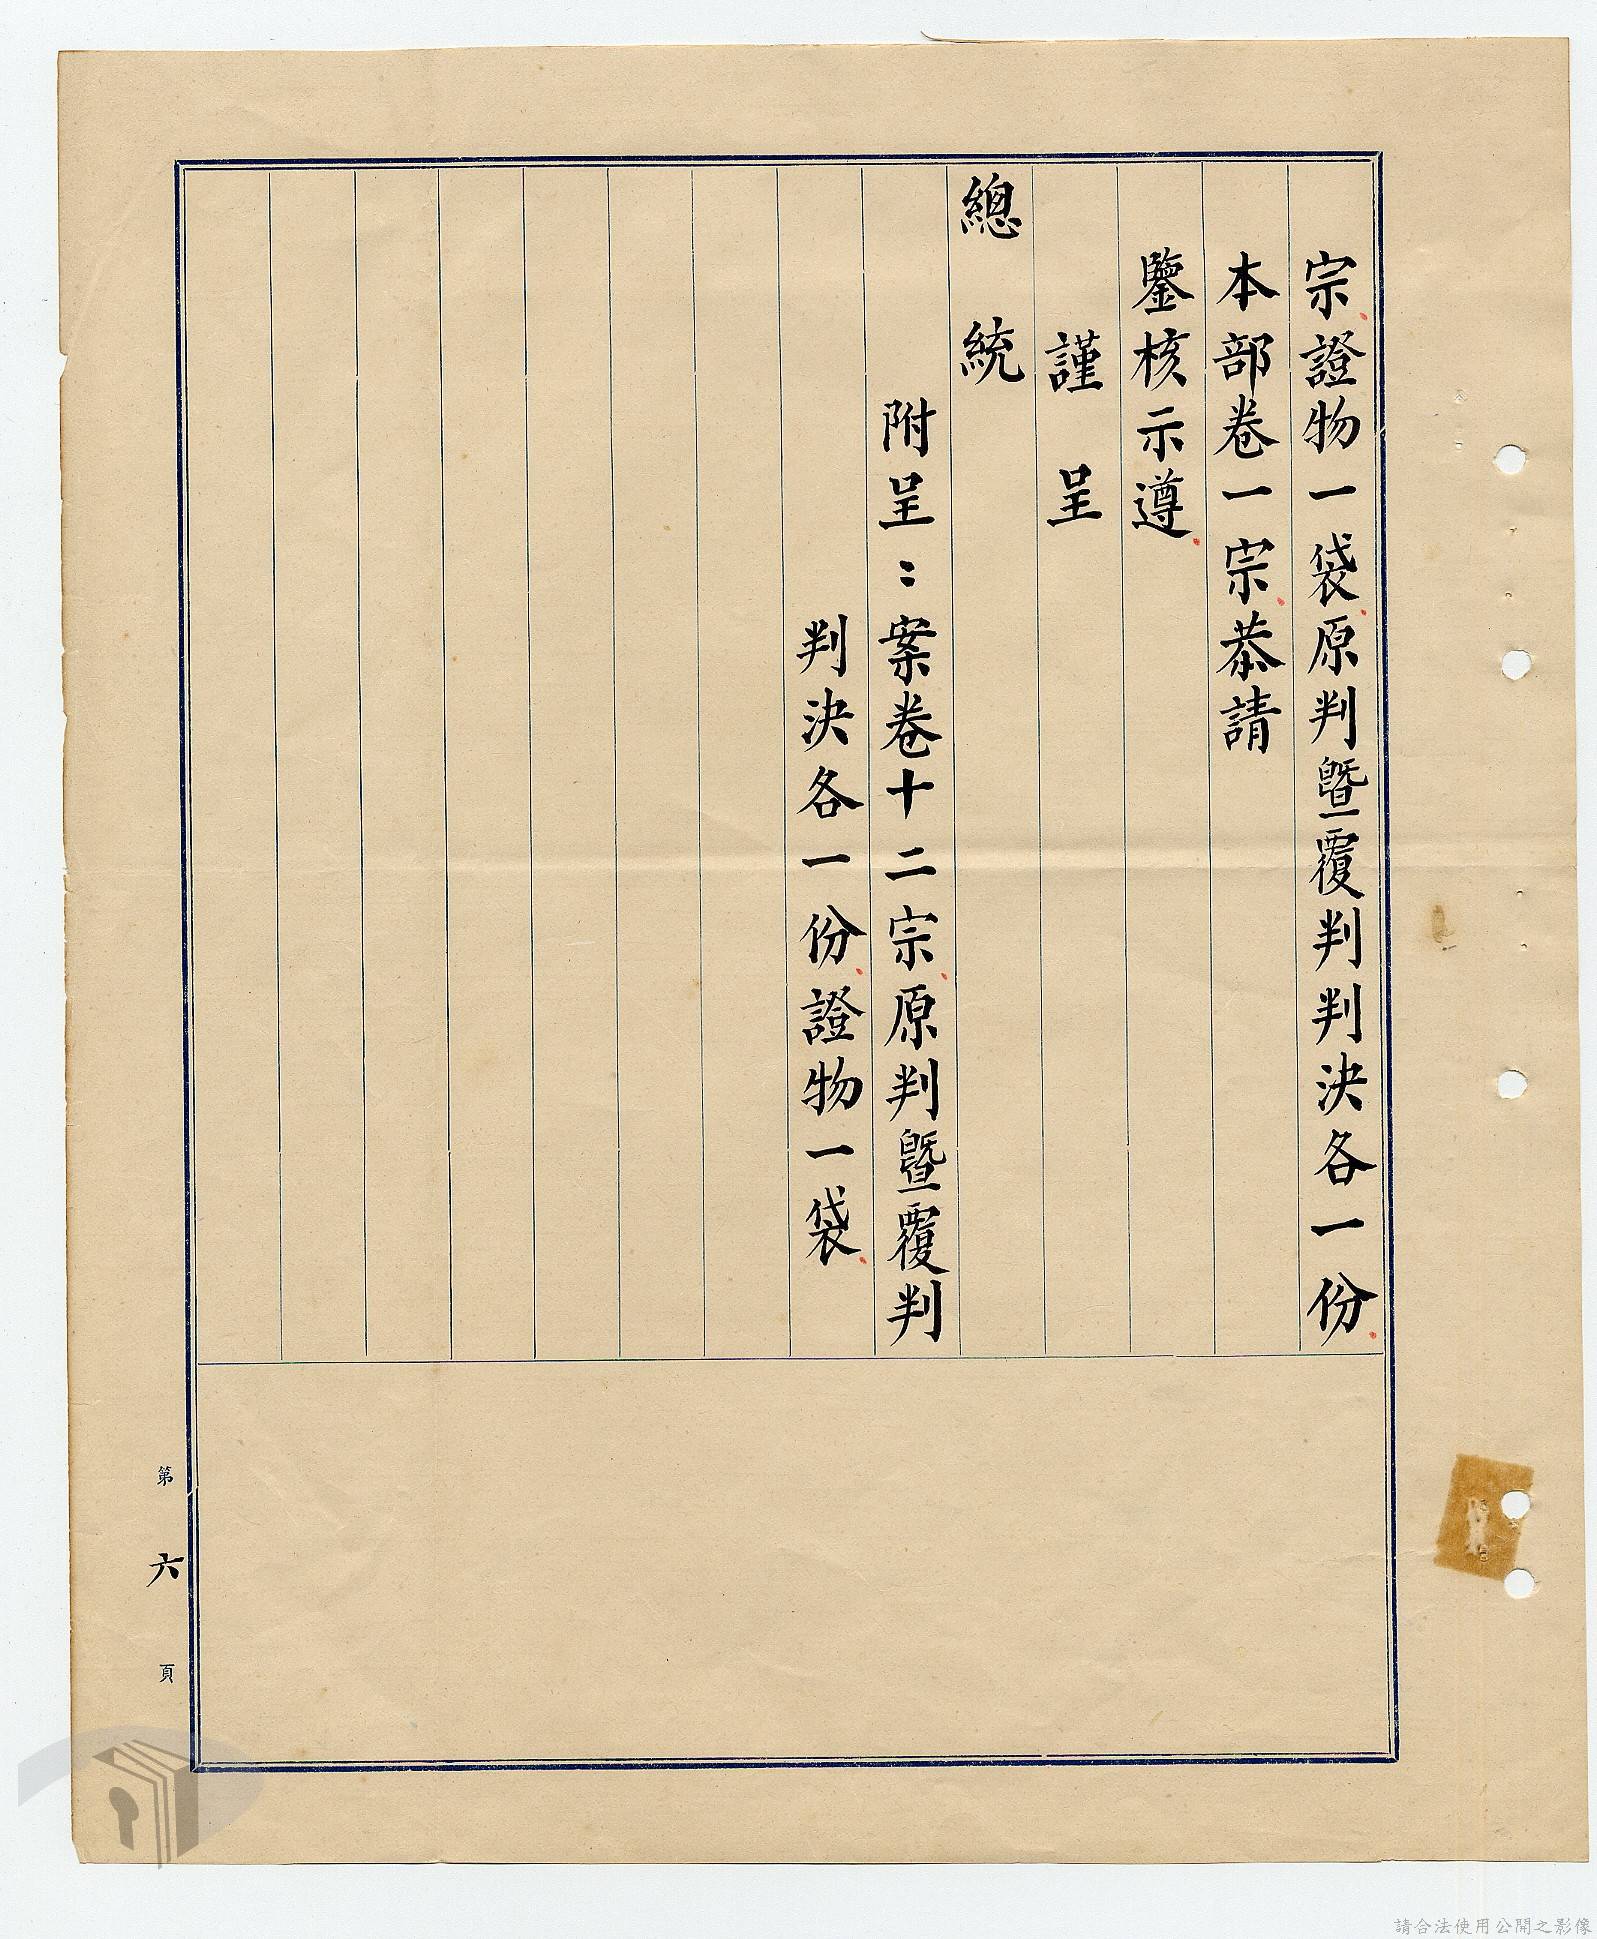 宗、證物一袋、原判暨覆判判決各一份、
本部卷一宗、恭請
鑒核示遵、
謹呈
總統
附呈：案卷十二宗、原判暨覆判
判決各一份、證物一袋、
第六頁
請合法使用公開之影像